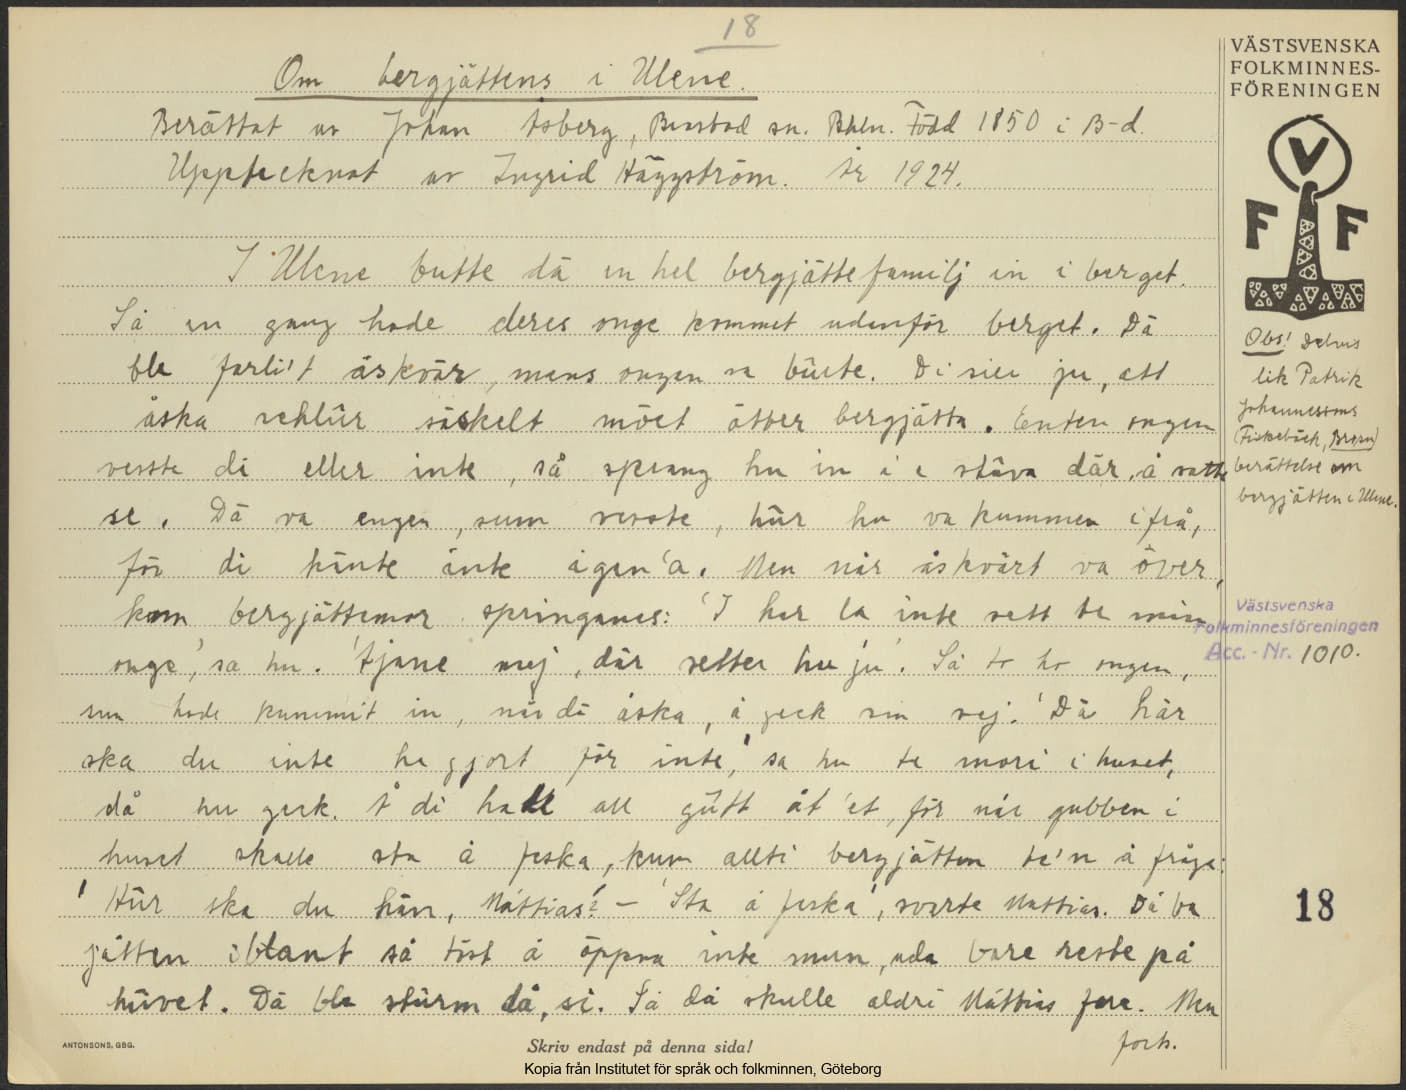 18
VÄSTSVENSKA
FOLKMINNES-
FÖRENINGEN
Om bergjättens i Ulene.
Berättat av Johan Åsberg, Brastad sn. Bhln. Född 1850 i B-d.
Upptecknat av Ingrid Häggström. År 1924.
V
F F
I Ulene butte dä en hel bergjättefamilj in i berget.
Så en gang hade deres onge kommet udenför berget. Dä
ble farli't åskvär, mens ongen va büete. Di sier ju, att
åska schlûr säskelt möet ätter bergjätta. Enten ongen
visste di eller inte, så sprang hu in i e stäva där, å satte
se. Dä va engen, sum visste, hûr hu va kummen ifrå,
för di kinte inte igen'a. Men når åskvärt va över,
kom bergjättemor springanes: 'I har la inte sett te min
onge', sa hu. 'Åjane mej, där setter hu ju'. Så to ho ongen,
sum hade kummit in, når di åska, å geck sin vej. 'Dä här
ska du inte ha gjort för inte,' sa hu te mori i huset,
då hu geck. Å di hade all gûtt åt 'et, för når gubben i
huset skulle sta å feska, kum allti bergjätten te'n å fråga:
'Hûr ska du hän, Mattias?' – 'Sta å feska', svarte Mattias. Då va
jätten iblant så tûst å öppna inte mun, uda bare reste på
hûvet. Dä ble stûrm då, si. Så då skulle aldri Mattias fara. Men
forts.
Obs! Delvis
lik Patrik
Johannessons
(Fiskebäck, Brastad)
berättelse om
bergjätten i Ulene.
Västsvenska
Folkminnesföreningen
Acc.-Nr. 1010.
18
ANTONSONS, GBG.
Skriv endast på denna sida!
Kopia från Institutet för språk och folkminnen, Göteborg